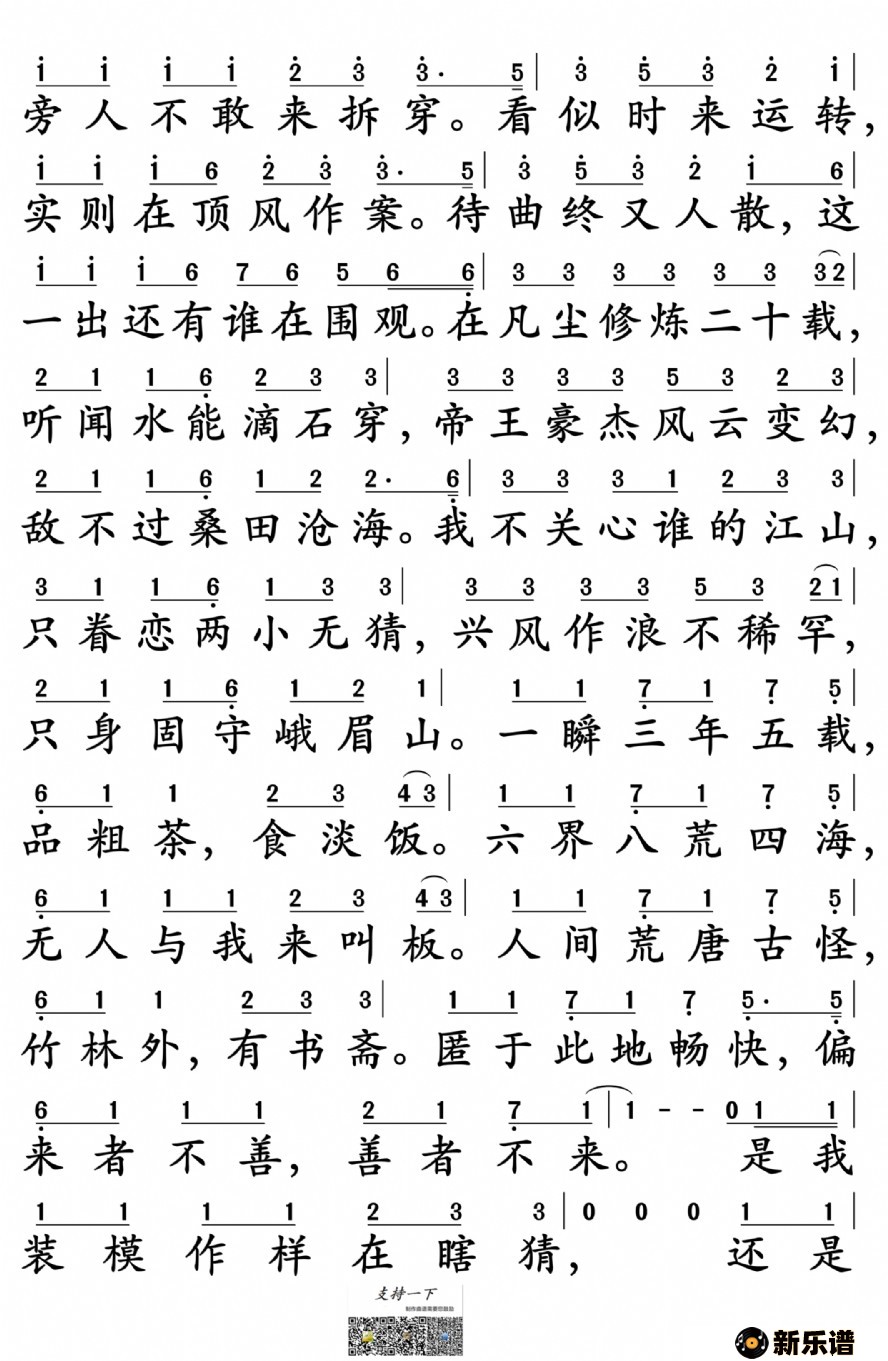 1 1 1 1 2 3 3· 5 | 3 5 3 2 1 |
旁人不敢来拆穿。看似时来运转,
1 1 1 6 2 3 3· 5 | 3 5 3 2 1 6 |
实则在顶风作案。待曲终又人散,这
1 1 1 6 7 6 5 6 6 | 3 3 3 3 3 3 3 2 |
一出还有谁在围观。在凡尘修炼二十载,
2 1 1 6 2 3 3 | 3 3 3 3 5 3 2 3 |
听闻水能滴石穿,帝王豪杰风云变幻,
2 1 1 6 1 2 2· 6 | 3 3 3 1 2 3 3 |
敌不过桑田沧海。我不关心谁的江山,
3 1 1 6 1 3 3 | 3 3 3 3 5 3 2 1 |
只眷恋两小无猜,兴风作浪不稀罕,
2 1 1 6 1 2 1 | 1 1 7 1 7 5 |
只身固守峨眉山。一瞬三年五载,
6 1 1 2 3 4 3 | 1 1 7 1 7 5 |
品粗茶,食淡饭。六界八荒四海,
6 1 1 1 2 3 4 3 | 1 1 7 1 7 5 |
无人与我来叫板。人间荒唐古怪,
6 1 1 2 3 3 | 1 1 7 1 7 5· 5 |
竹林外,有书斋。匿于此地畅快,偏
6 1 1 1 2 1 7 1 | 1 - - 0 1 1 |
来者不善,善者不来。是我
1 1 1 1 2 3 3 | 0 0 0 1 1 |
装模作样在瞎猜,还是
支持一下
新乐谱